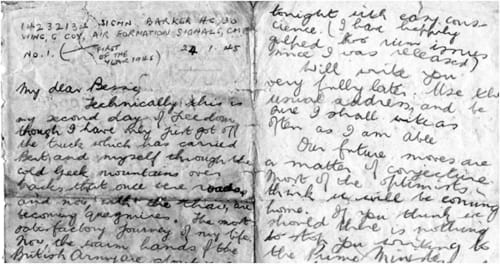 14232134 SIGMN. BARKER H.C., 30
WING, G COY, AIR FORMATION SIGNALS, CMF
NO. 1. (FIRST OF THE YEAR 1945) 24. 1. 45
My dear Bessie,
Technically this is
my second day of freedom
though I have only just got off
the truck which has carried
Bert and myself through the
cold Greek mountains over
tracks that once were roads,
and now with the thaw, are
becoming quagmires. The most
satisfactory journey of my life.
Now, the warm hands of the
British Army are
tonight with easy cons-
cience. (I have happily
gulped two rum issues
since I was released)
Will write you
very fully later. Use the
usual address, and be
sure I shall write as
often as I am able
Our future moves are
a matter of conjecture
Most of the optimists
think we will be coming
home. If you think we
should there is nothing
to stop you writing to
the Prime Minister!